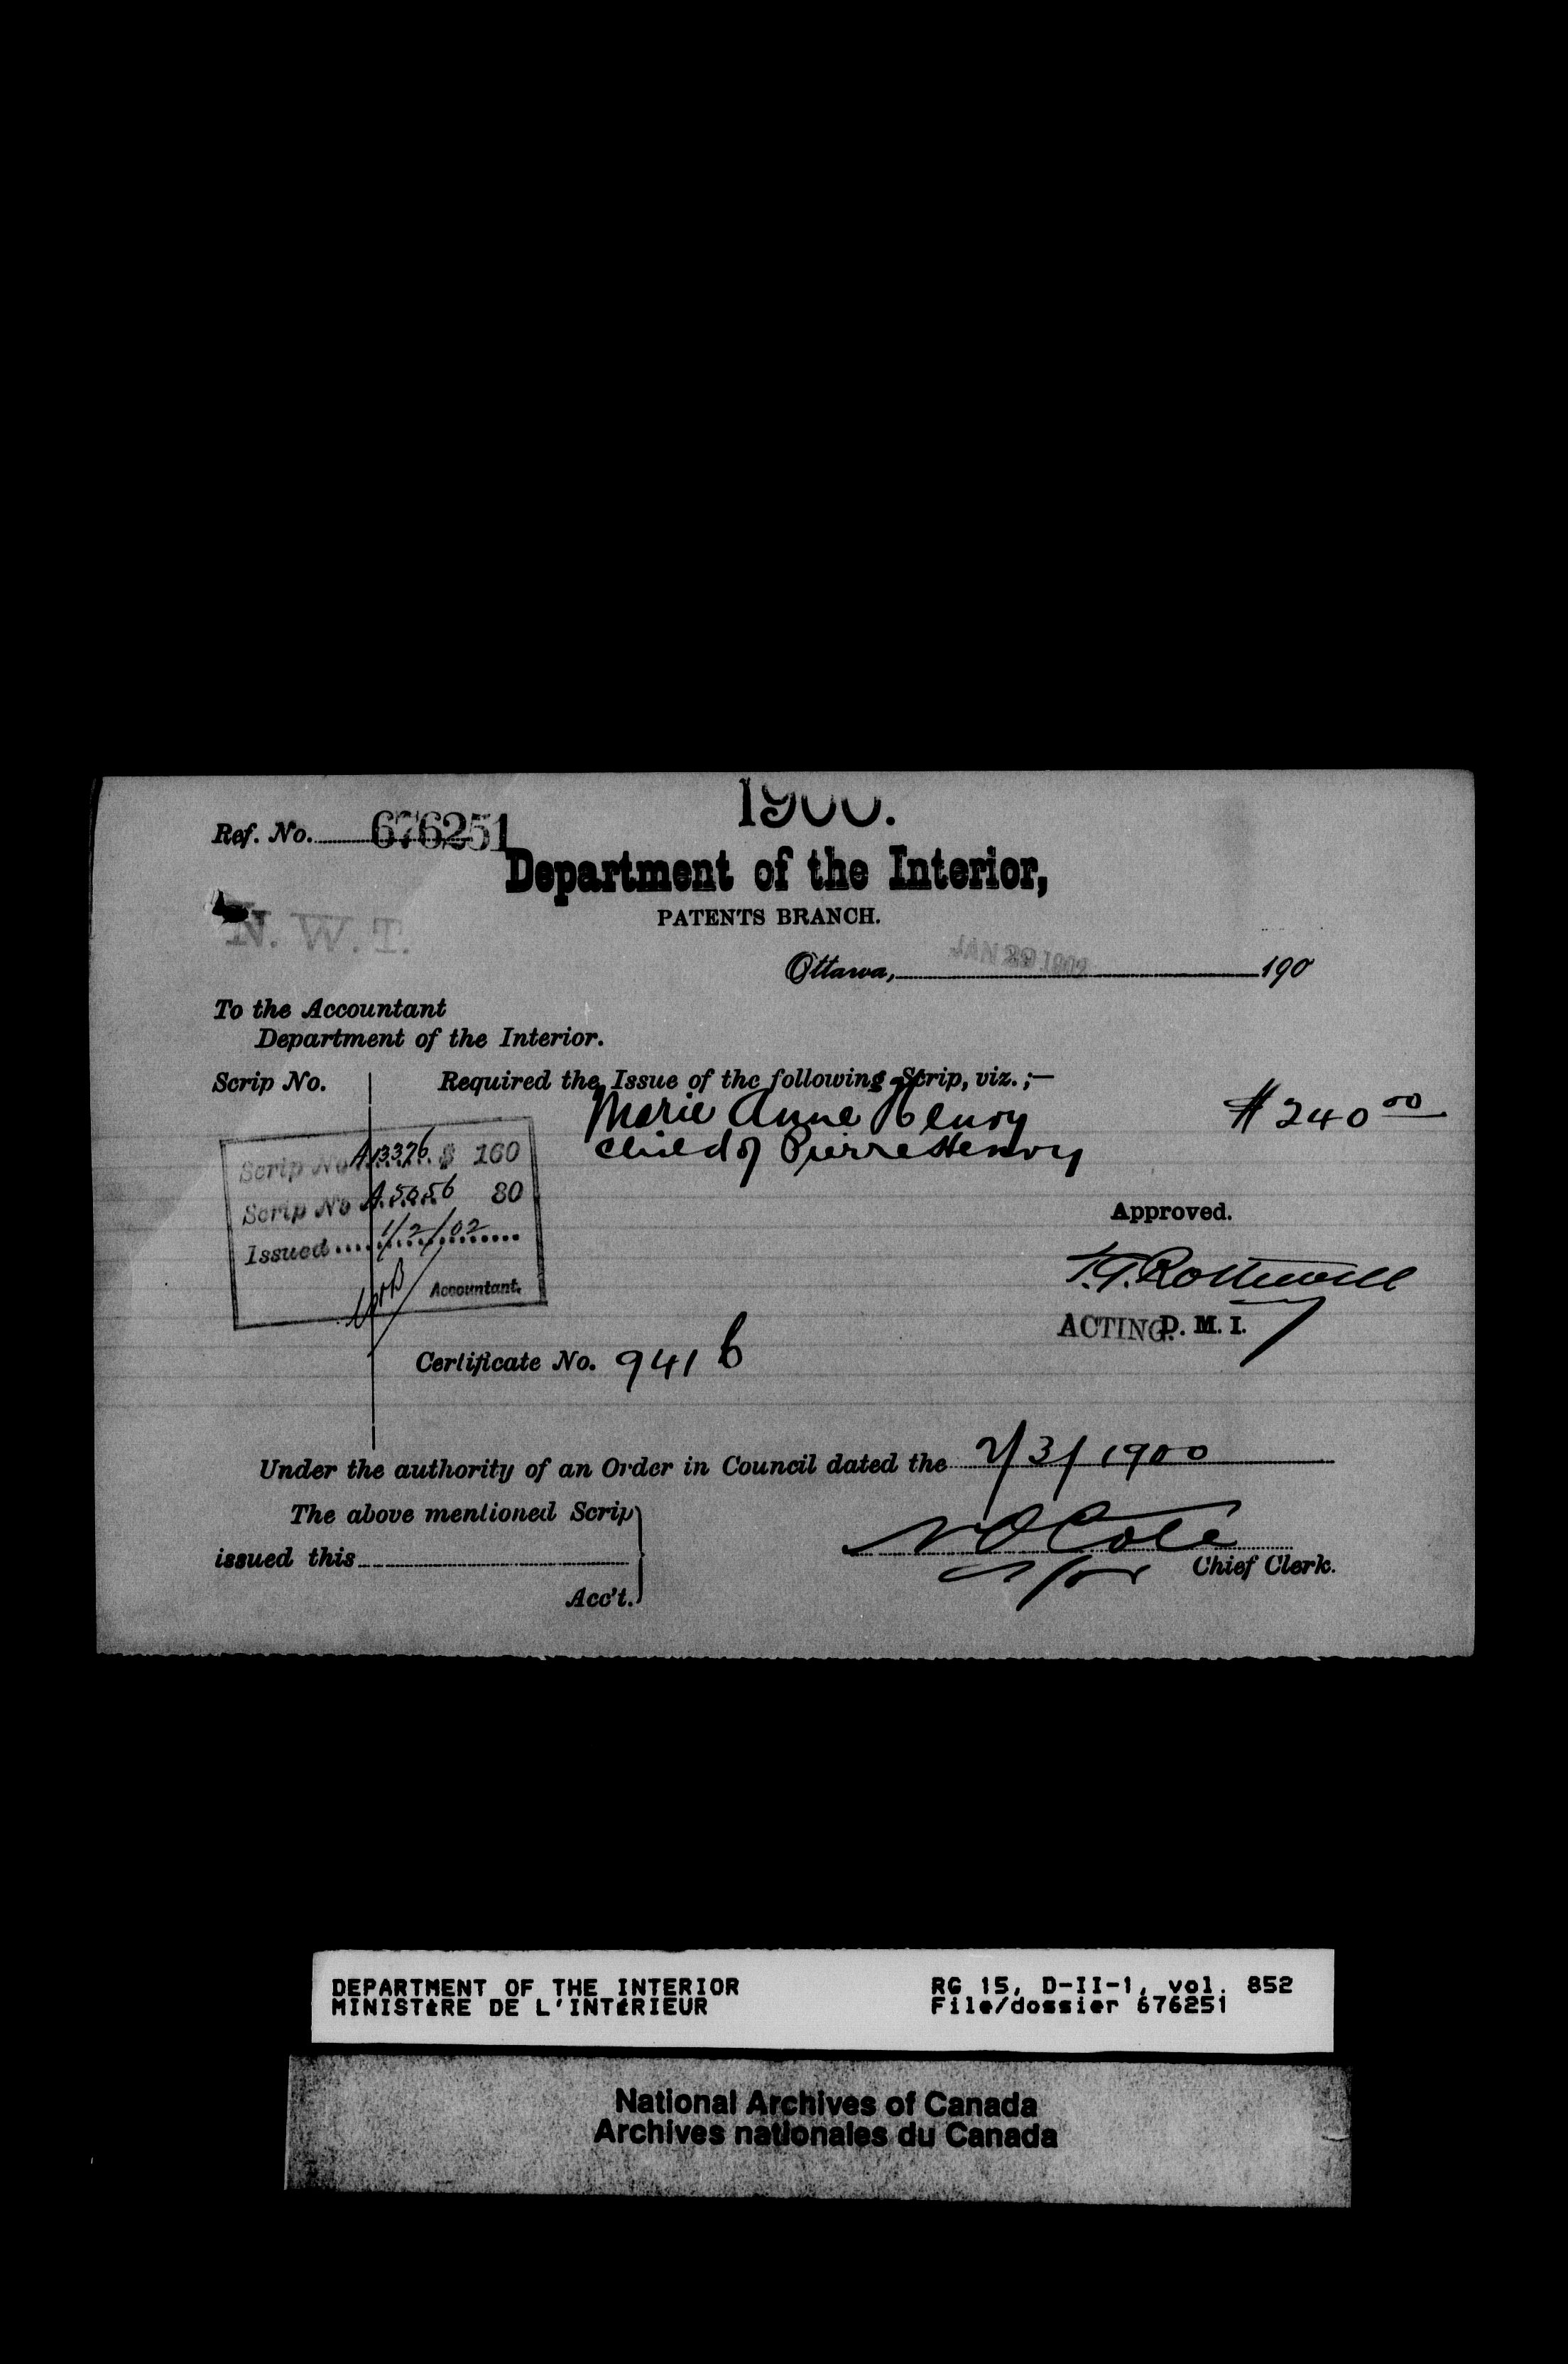 1900.
Ref. No. 676251
Department of the Interior,
PATENTS BRANCH.
N. W. T.
Ottawa, JAN 29 1902 190
To the Accountant
Department of the Interior.
Scrip No. Required the Issue of the following Scrip, viz.;—
Marie Anne Henry $240 00
child of Pierre Henry
Scrip No A13376 $ 160
Scrip No A.5056 80
Issued 1/2/02
Accountant.
Approved.
ACTING D. M. I.
Certificate No. 941 b
Under the authority of an Order in Council dated the 2/3/1900
The above mentioned Scrip
issued this
N O Coté
for Chief Clerk.
Acc't.
DEPARTMENT OF THE INTERIOR RG 15, D-II-1, vol. 852
MINISTÈRE DE L'INTÉRIEUR File/dossier 676251
National Archives of Canada
Archives nationales du Canada